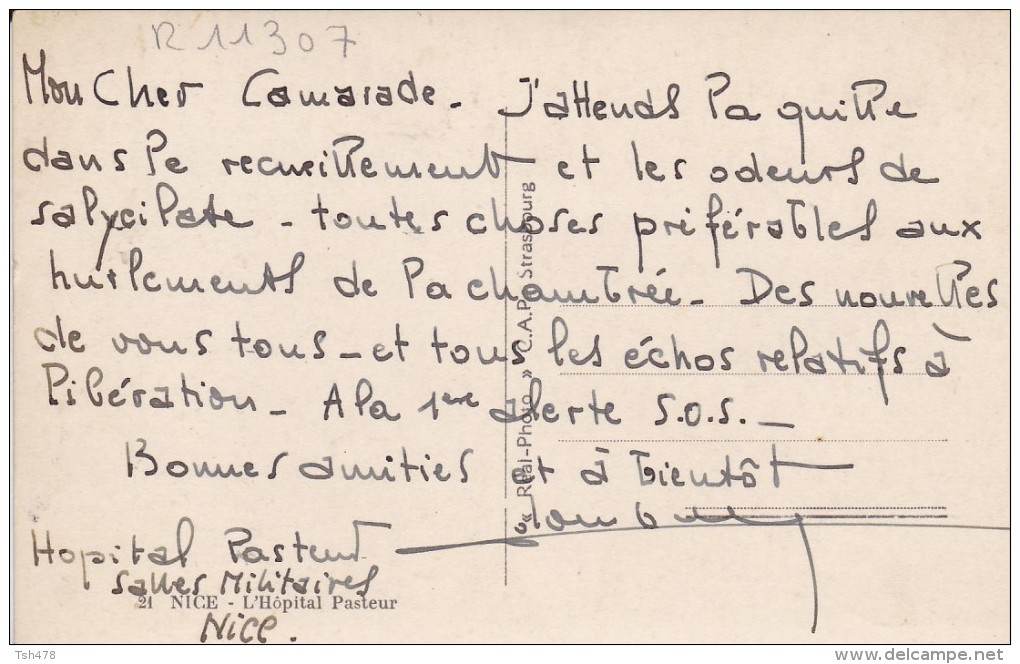 R 11307
Mon Cher Camarade - J'attends la quille
dans le recueillement et les odeurs de
salycilate - toutes choses préférables aux
hurlements de la chambrée - Des nouvelles
de vous tous - et tous les échos relatifs à
libération - A la 1ere alerte S.O.S. -
Bonnes amitiés et à bientôt
Hopital Pasteur
Salles Militaires
Nice.
21 NICE - L'Hôpital Pasteur
« Réal-Photo » C.A.P. Strasbourg
Tsh478
delcampe.net